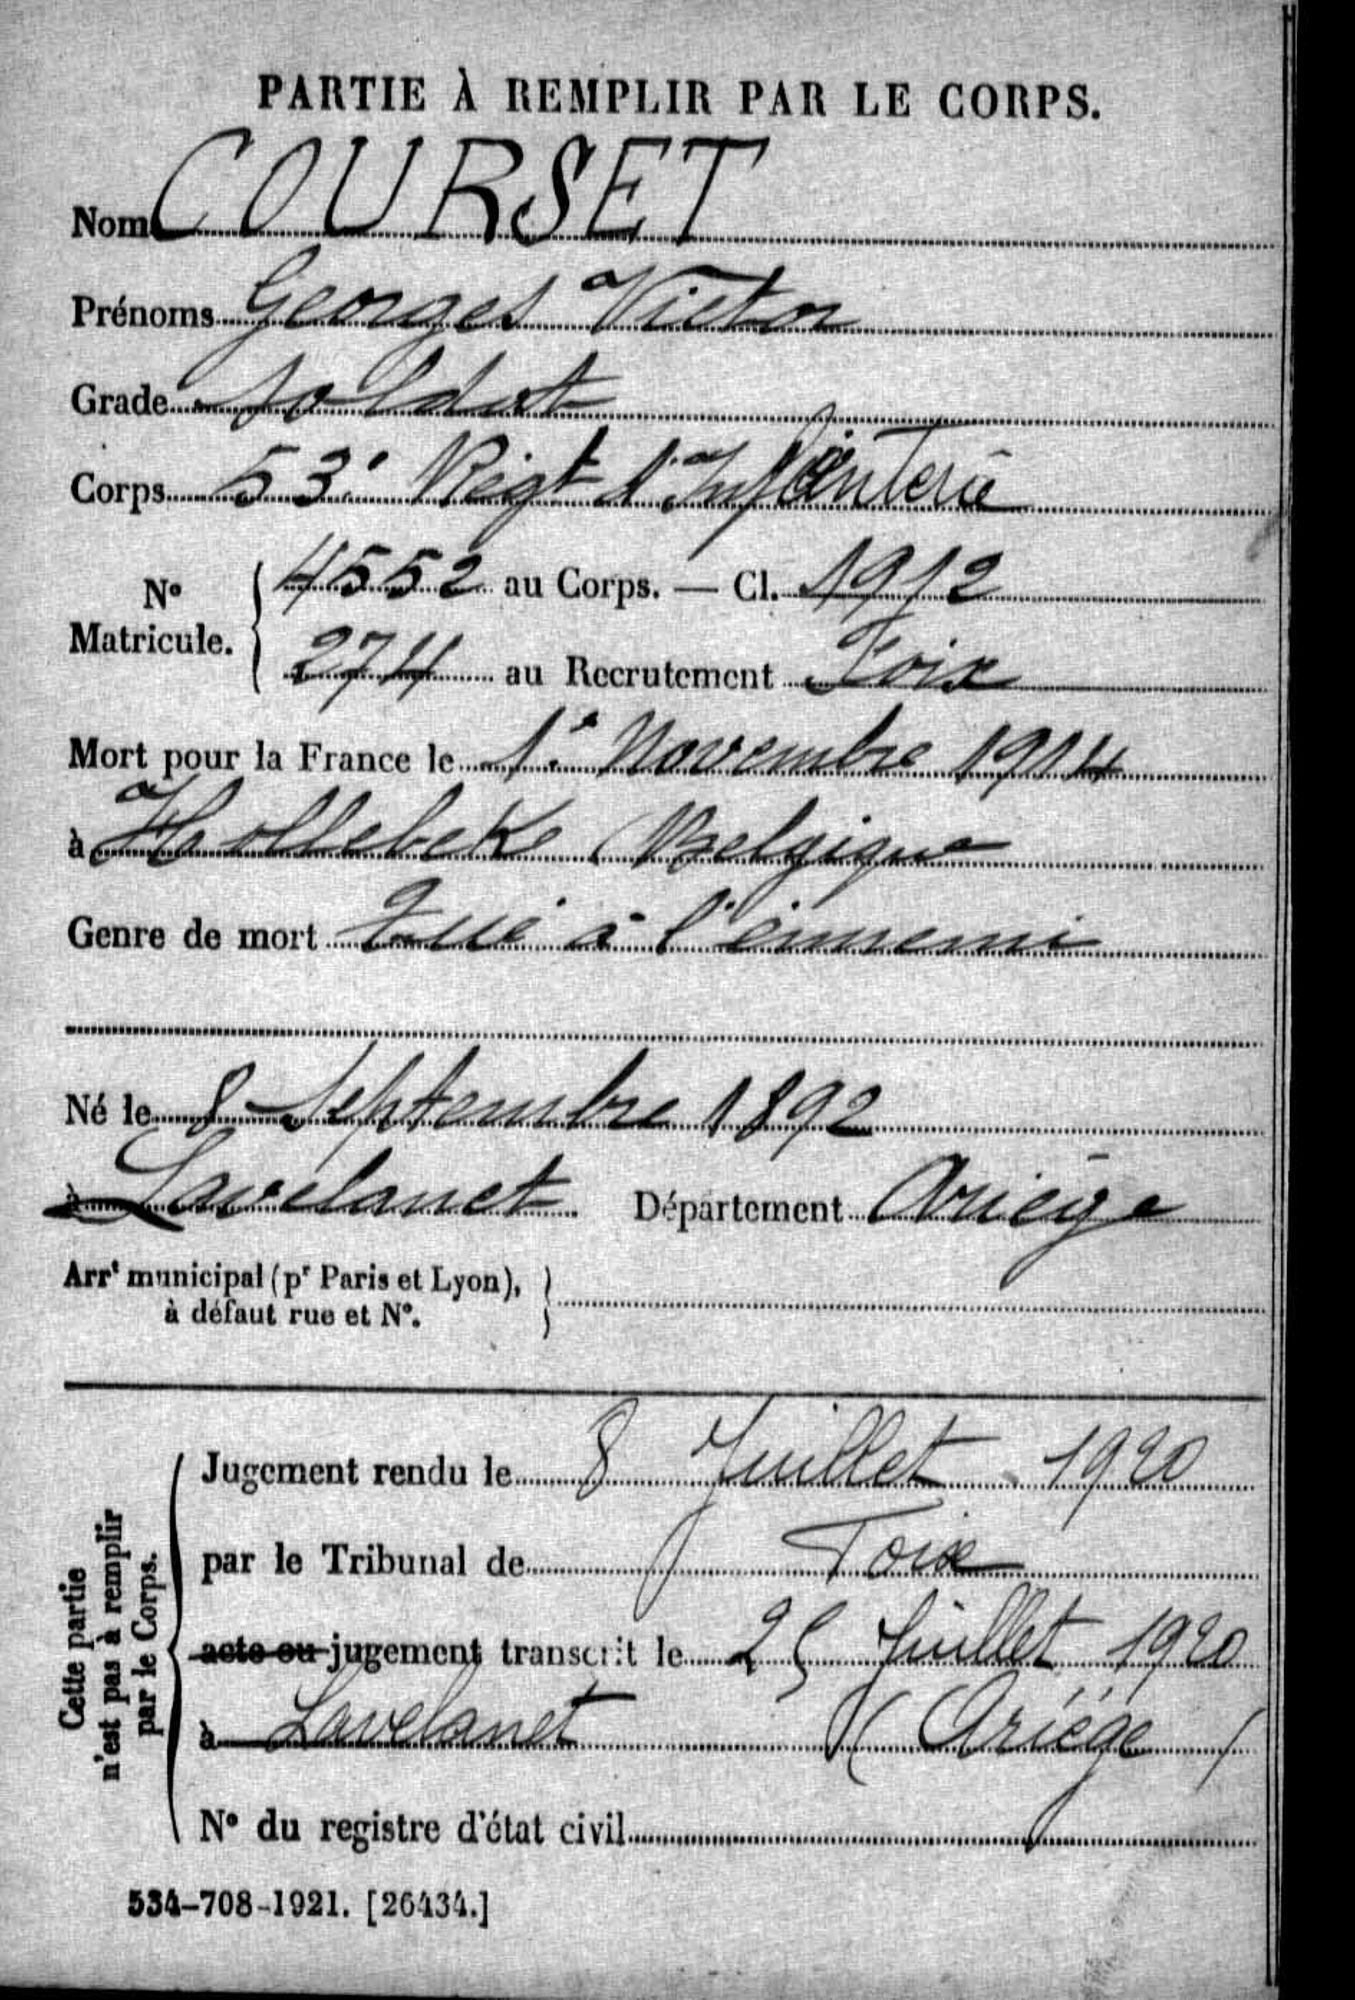 PARTIE À REMPLIR PAR LE CORPS.
Nom COURSET
Prénoms Georges Victor
Grade soldat
Corps 53e Régt d'Infanterie
No Matricule. { 4552 au Corps. — Cl. 1912
274 au Recrutement Foix
Mort pour la France le 1er Novembre 1914
à Hollebeke (Belgique
Genre de mort tué à l'ennemi
Né le 8 Septembre 1892
à Lavelanet Département Ariège
Arrt municipal (pr Paris et Lyon), }
à défaut rue et No.
Cette partie
n'est pas à remplir
par le Corps.
Jugement rendu le 8 Juillet 1920
par le Tribunal de Foix
acte ou jugement transcrit le 25 Juillet 1920
à Lavelanet (Ariège)
No du registre d'état civil
534-708-1921. [26434.]